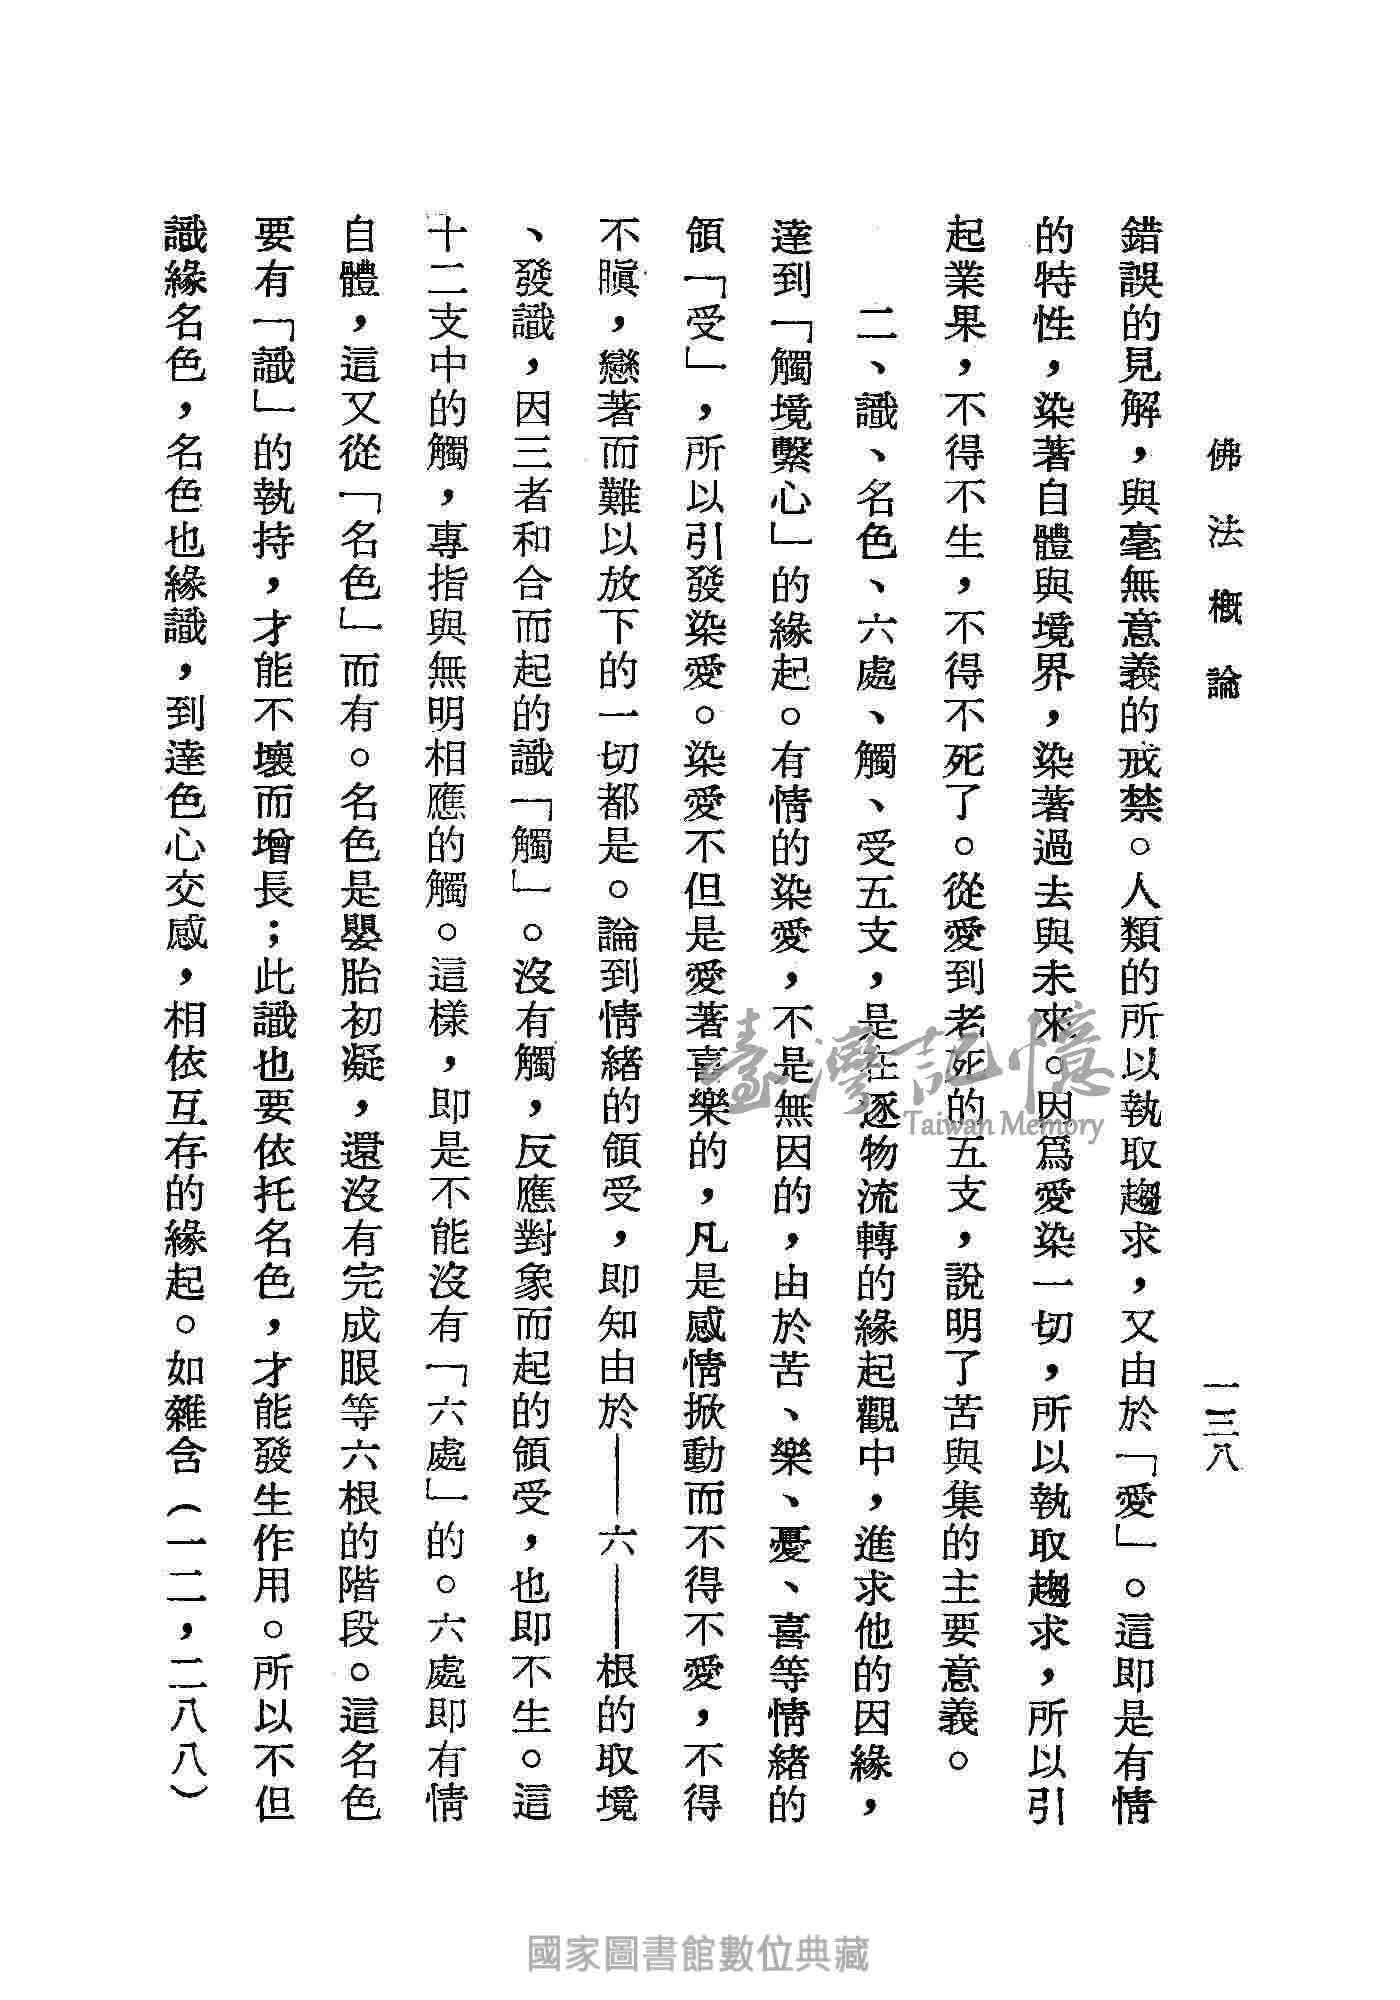 佛法概論
一三八
錯誤的見解，與毫無意義的戒禁。人類的所以執取趨求，又由於「愛」。這即是有情
的特性，染著自體與境界，染著過去與未來。因爲愛染一切，所以執取趨求，所以引
起業果，不得不生，不得不死了。從愛到老死的五支，說明了苦與集的主要意義。
二、識、名色、六處、觸、受五支，是在逐物流轉的緣起觀中，進求他的因緣，
達到「觸境繫心」的緣起。有情的染愛，不是無因的，由於苦、樂、憂、喜等情緒的
領「受」，所以引發染愛。染愛不但是愛著喜樂的，凡是感情掀動而不得不愛，不得
不瞋，戀著而難以放下的一切都是。論到情緒的領受，即知由於——六——根的取境
、發識，因三者和合而起的識「觸」。沒有觸，反應對象而起的領受，也即不生。這
十二支中的觸，專指與無明相應的觸。這樣，即是不能沒有「六處」的。六處即有情
自體，這又從「名色」而有。名色是嬰胎初凝，還沒有完成眼等六根的階段。這名色
要有「識」的執持，才能不壞而增長；此識也要依托名色，才能發生作用。所以不但
識緣名色，名色也緣識，到達色心交感，相依互存的緣起。如雜含（一二，二八八）
臺灣記憶
Taiwan Memory
國家圖書館數位典藏